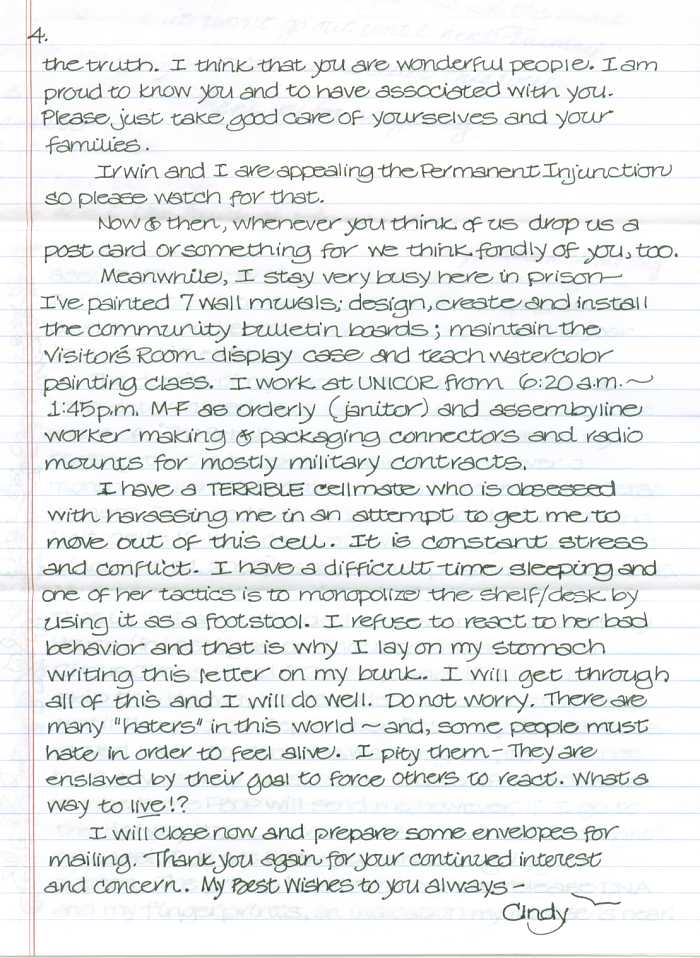 4.
the truth. I think that you are wonderful people. I am
proud to know you and to have associated with you.
Please just take good care of yourselves and your
families.
Irwin and I are appealing the Permanent Injunction
so please watch for that.
Now & then, whenever you think of us drop us a
post card or something for we think fondly of you, too.
Meanwhile, I stay very busy here in prison—
I've painted 7 wall murals; design, create and install
the community bulletin boards; maintain the
Visitor's Room display case and teach watercolor
painting class. I work at UNICOR from 6:20 a.m. ~
1:45 p.m. M-F as orderly (janitor) and assemblyline
worker making & packaging connectors and radio
mounts for mostly military contracts.
I have a TERRIBLE cellmate who is obsessed
with harassing me in an attempt to get me to
move out of this cell. It is constant stress
and conflict. I have a difficult time sleeping and
one of her tactics is to monopolize the shelf/desk by
using it as a footstool. I refuse to react to her bad
behavior and that is why I lay on my stomach
writing this letter on my bunk. I will get through
all of this and I will do well. Do not worry. There are
many "haters" in this world ~ and, some people must
hate in order to feel alive. I pity them – They are
enslaved by their goal to force others to react. What a
way to live!?
I will close now and prepare some envelopes for
mailing. Thank you again for your continued interest
and concern. My Best Wishes to you always –
Cindy